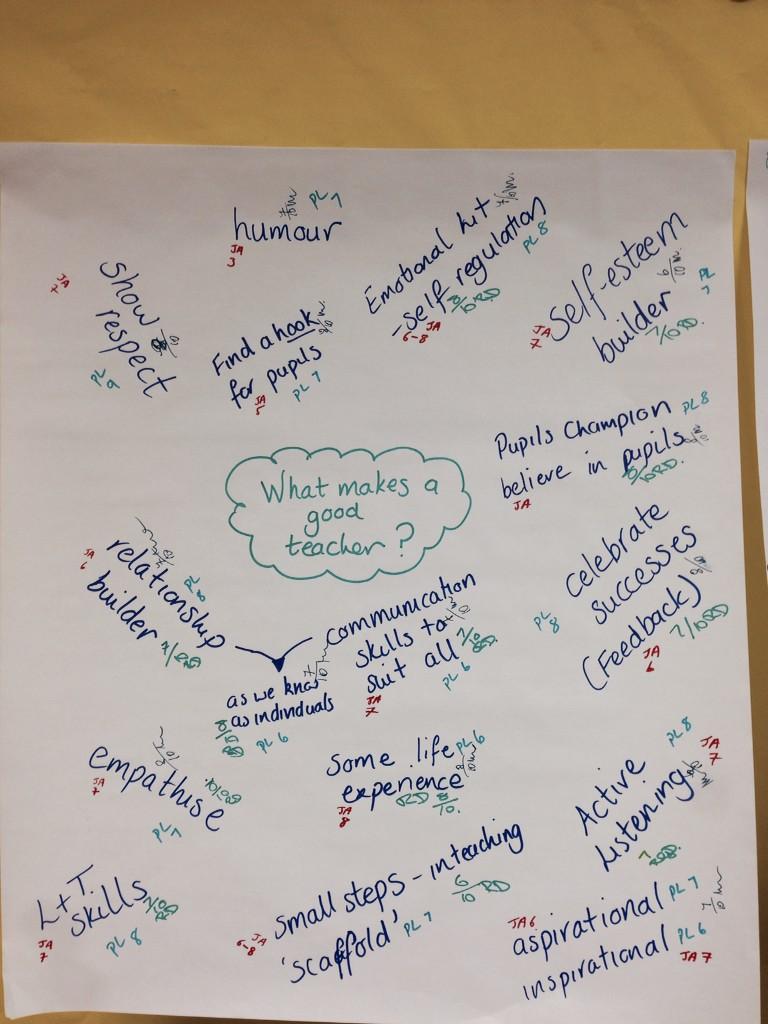 humour
PL 7
JA
3
Show
respect
JA
7
PL 9
Find a hook
for pupils
JA
5
PL 7
Emotional kit
- self regulation
PL 8
8/10 RD
JA
6-8
Self-esteem
builder
6/10 m.
JA
7
7/10 RD.
PL
7
Pupils Champion
believe in pupils
PL 8
JA
8/10 RD.
What makes a
good
teacher?
relationship
builder
JA
6
PL 8
communication
skills to
suit all
7/10
RD
PL 6
JA
7
as we know
as individuals
10/10
RD
PL 6
7/10 m
celebrate
successes
(Feedback)
PL
8
7/10 RD
JA
6
empathise
8/10 m
JA
7
PL 7
Some life
experience
PL 6
8/10 m
JA
8
RD 8/10.
Active
Listening
PL 8
JA
7
L + T.
skills
7/10
RD
JA
7
PL 8
small steps - in teaching
'scaffold'
6/10 RD
6-8 JA
PL 7
JA 6
aspirational PL 7
inspirational PL 6
7/10 m
JA 7